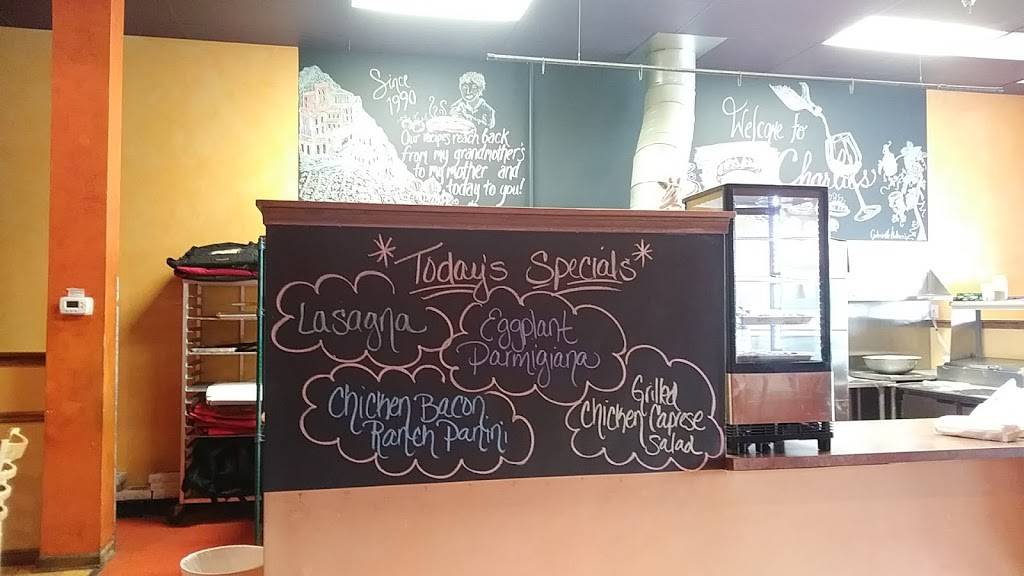 Since
1990
Our recipes reach back
from my grandmother's
to my mother and
today to you!
Welcome to
*Today's Specials*
Lasagna
Eggplant
Parmigiana
Chicken Bacon
Ranch Panini
Grilled
Chicken Caprese
Salad